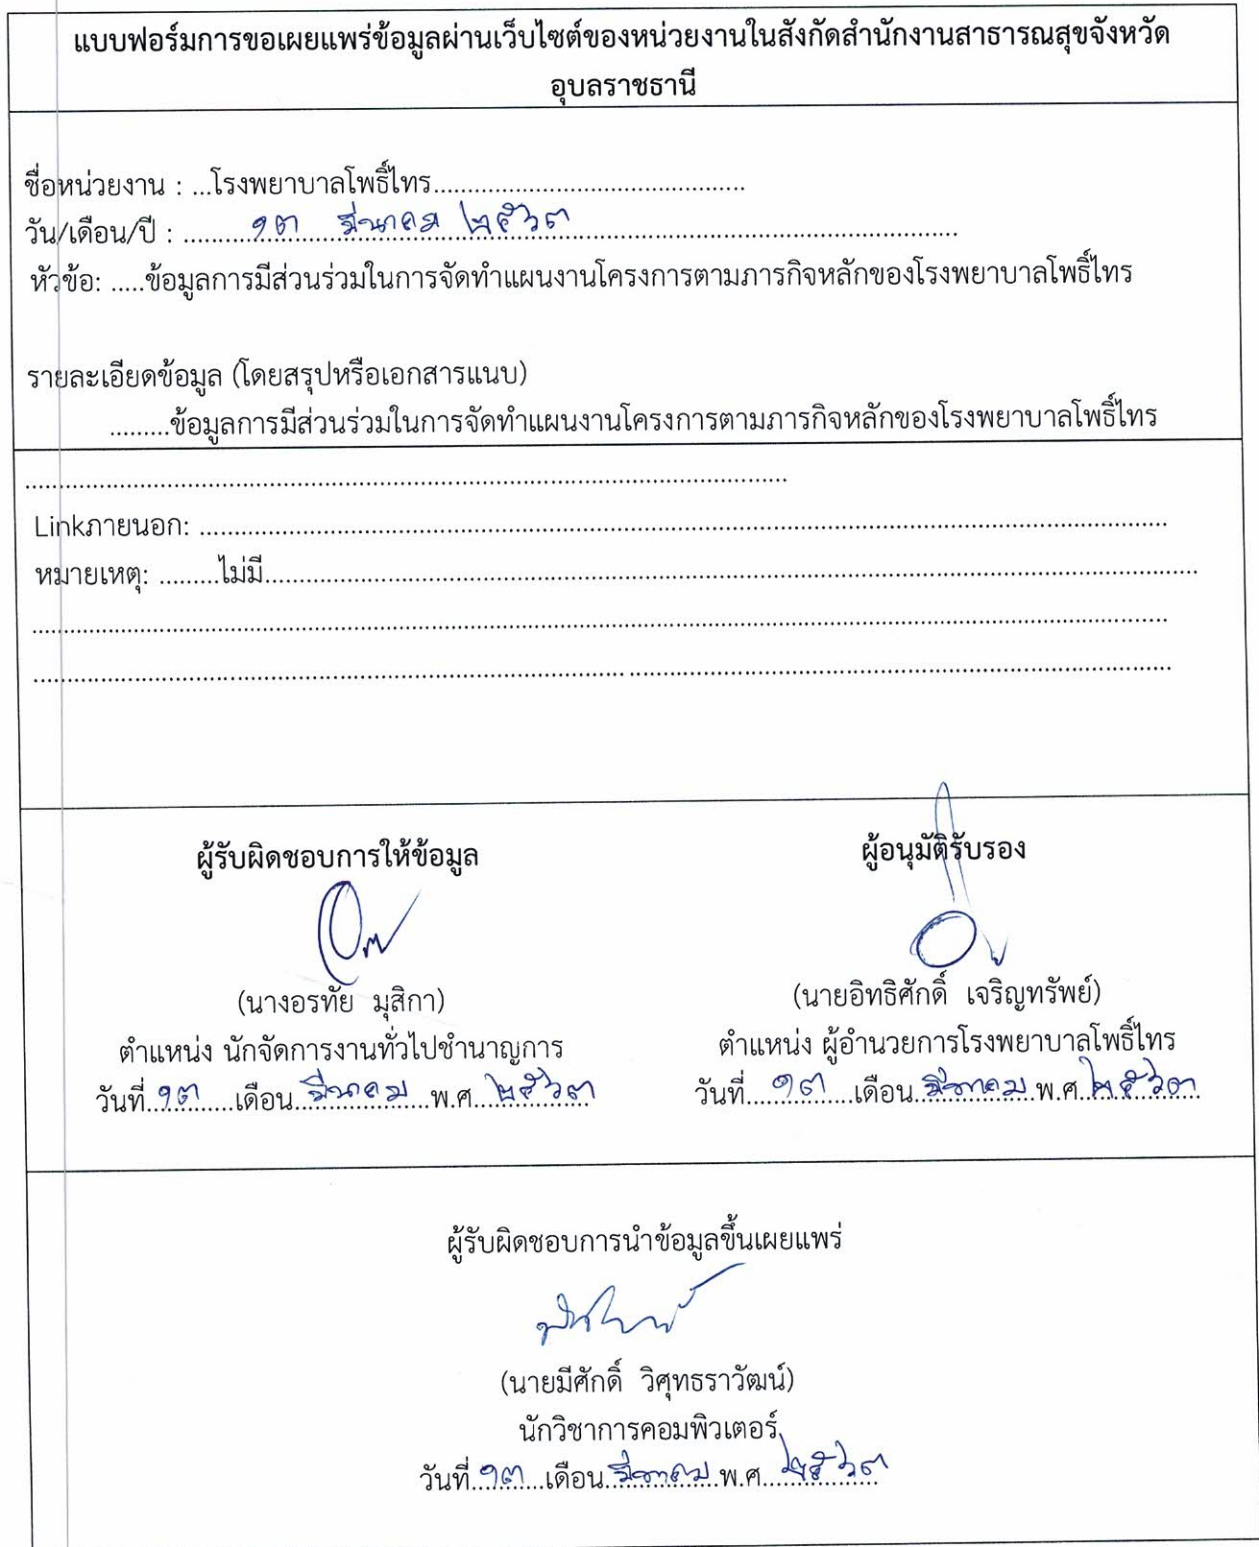 แบบฟอร์มการขอเผยแพร่ข้อมูลผ่านเว็บไซต์ของหน่วยงานในสังกัดสำนักงานสาธารณสุขจังหวัด
อุบลราชธานี
ชื่อหน่วยงาน : ...โรงพยาบาลโพธิ์ไทร..............................................
วัน/เดือน/ปี : ..........๑๓ มีนาคม ๒๕๖๓..........................................................
หัวข้อ: .....ข้อมูลการมีส่วนร่วมในการจัดทำแผนงานโครงการตามภารกิจหลักของโรงพยาบาลโพธิ์ไทร
รายละเอียดข้อมูล (โดยสรุปหรือเอกสารแนบ)
.........ข้อมูลการมีส่วนร่วมในการจัดทำแผนงานโครงการตามภารกิจหลักของโรงพยาบาลโพธิ์ไทร
Linkภายนอก: ..............................................................................
หมายเหตุ: .........ไม่มี..............................................................................
ผู้รับผิดชอบการให้ข้อมูล ผู้อนุมัติรับรอง
(นางอรทัย มุสิกา) (นายอิทธิศักดิ์ เจริญทรัพย์)
ตำแหน่ง นักจัดการงานทั่วไปชำนาญการ ตำแหน่ง ผู้อำนวยการโรงพยาบาลโพธิ์ไทร
วันที่..๑๓..........เดือน..มีนาคม..........พ.ศ...๒๕๖๓ วันที่....๑๓..........เดือน..มีนาคม..พ.ศ..๒๕๖๓
ผู้รับผิดชอบการนำข้อมูลขึ้นเผยแพร่
(นายมีศักดิ์ วิศุทธราวัฒน์)
นักวิชาการคอมพิวเตอร์
วันที่.๑๓....เดือน..มีนาคม..พ.ศ....๒๕๖๓